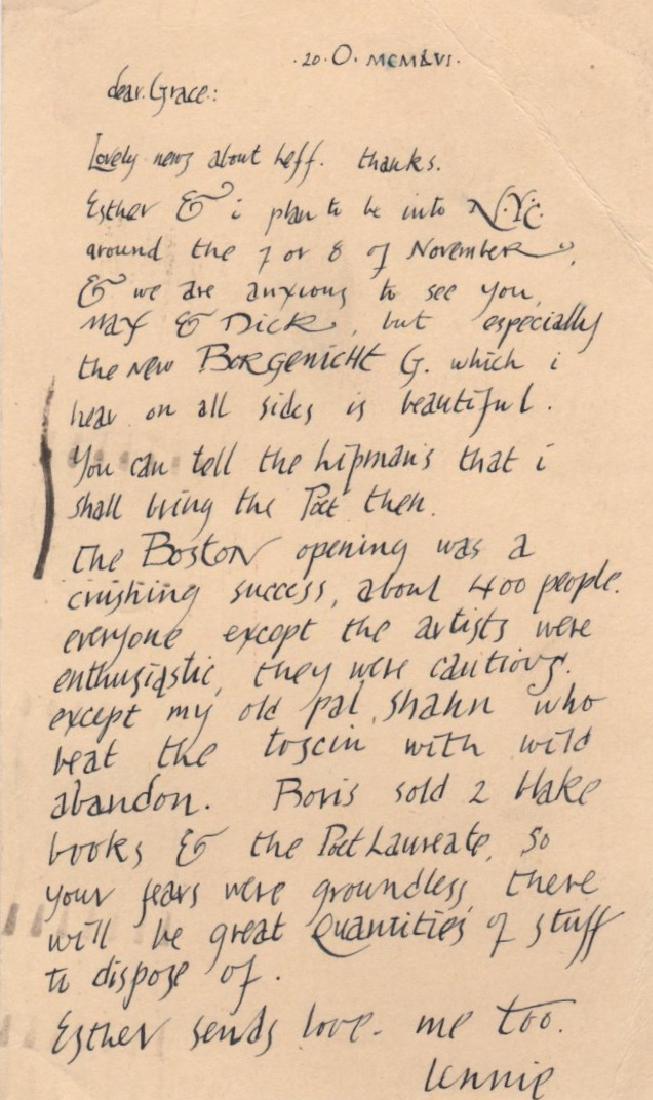 ·20·O·MCMLVI·
dear Grace:
Lovely news about Leff. thanks.
Esther & i plan to be into N.Y.C.
around the 7 or 8 of November,
& we are anxious to see you,
Max & Dick, but especially
the new Borgenicht G. which i
hear on all sides is beautiful.
You can tell the Lipman's that i
shall bring the Poet then.
The Boston opening was a
crushing success, about 400 people.
everyone except the artists were
enthusiastic, they were cautious.
except my old pal, Shahn who
beat the tocsin with wild
abandon. Boris sold 2 blake
books & the Poet Laureate, so
your fears were groundless, there
will be great Quantities of stuff
to dispose of.
Esther sends love. me too.
Lennie